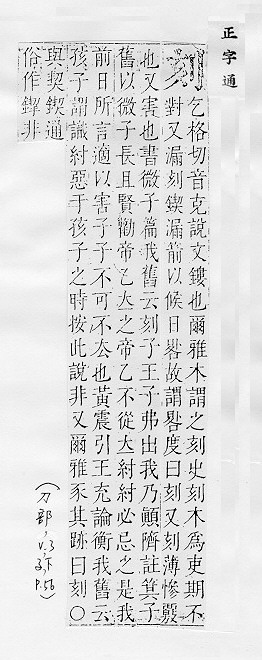 正字通
刻 乞格切音克說文鏤也爾雅木謂之刻史刻木為吏期不
對又漏刻鍥漏箭以候日晷故謂晷度曰刻又刻薄慘覈
也又害也書微子篇我舊云刻子王子弗出我乃顚隮註箕子
舊以微子長且賢勸帝乙立之帝乙不從立紂紂必忌之是我
前日所言適以害子子不可不去也黃震引王充論衡我舊云
孩子謂識紂惡于孩子之時按此說非又爾雅豕其跡曰刻〇
與契鍥通
俗作非
(刀部, v.3, 子下, p.56)